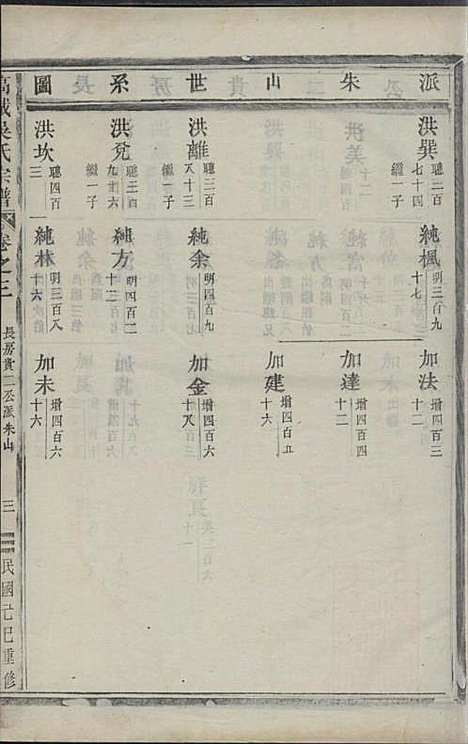 派朱山世系圖
洪巽 聰二百七十四 繼一子
洪離 聰三百八十三 繼一子
洪兌 聰三百九十六 繼一子
洪坎 聰四百三
純楓 明三百九十七
純余 明四百九
純方 明四百二十二
純林 明三百八十六
加法 增四百三十二
加達 增四百四十二
加建 增四百五十六
加金 增四百六十八
加未 增四百六十六
吳氏宗譜
卷之三
長房貴二丞派朱山
三
民國己巳重修